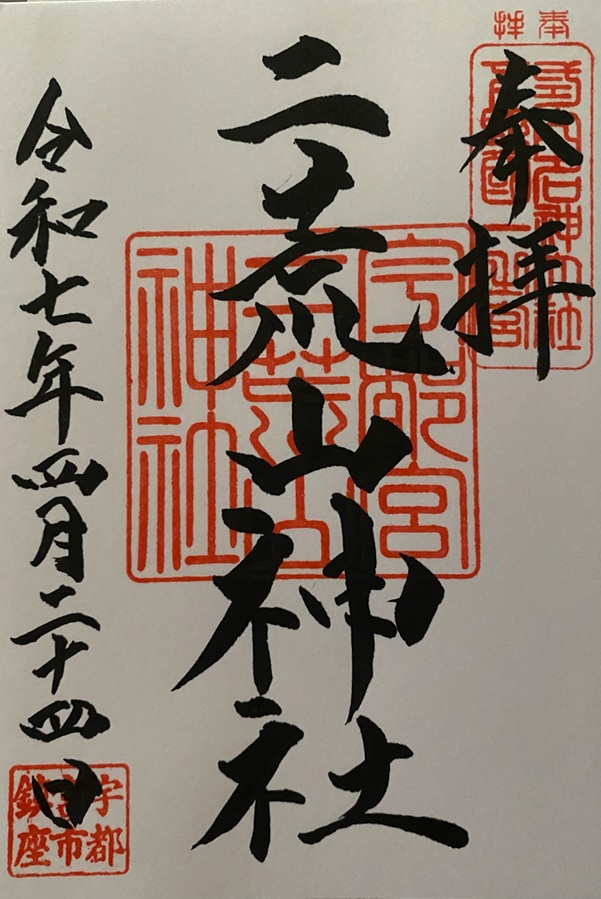 奉拝
奉拝
二荒山神社
宇都宮
二荒山
神社
令和七年四月二十四日
宇都
宮市
鎮座